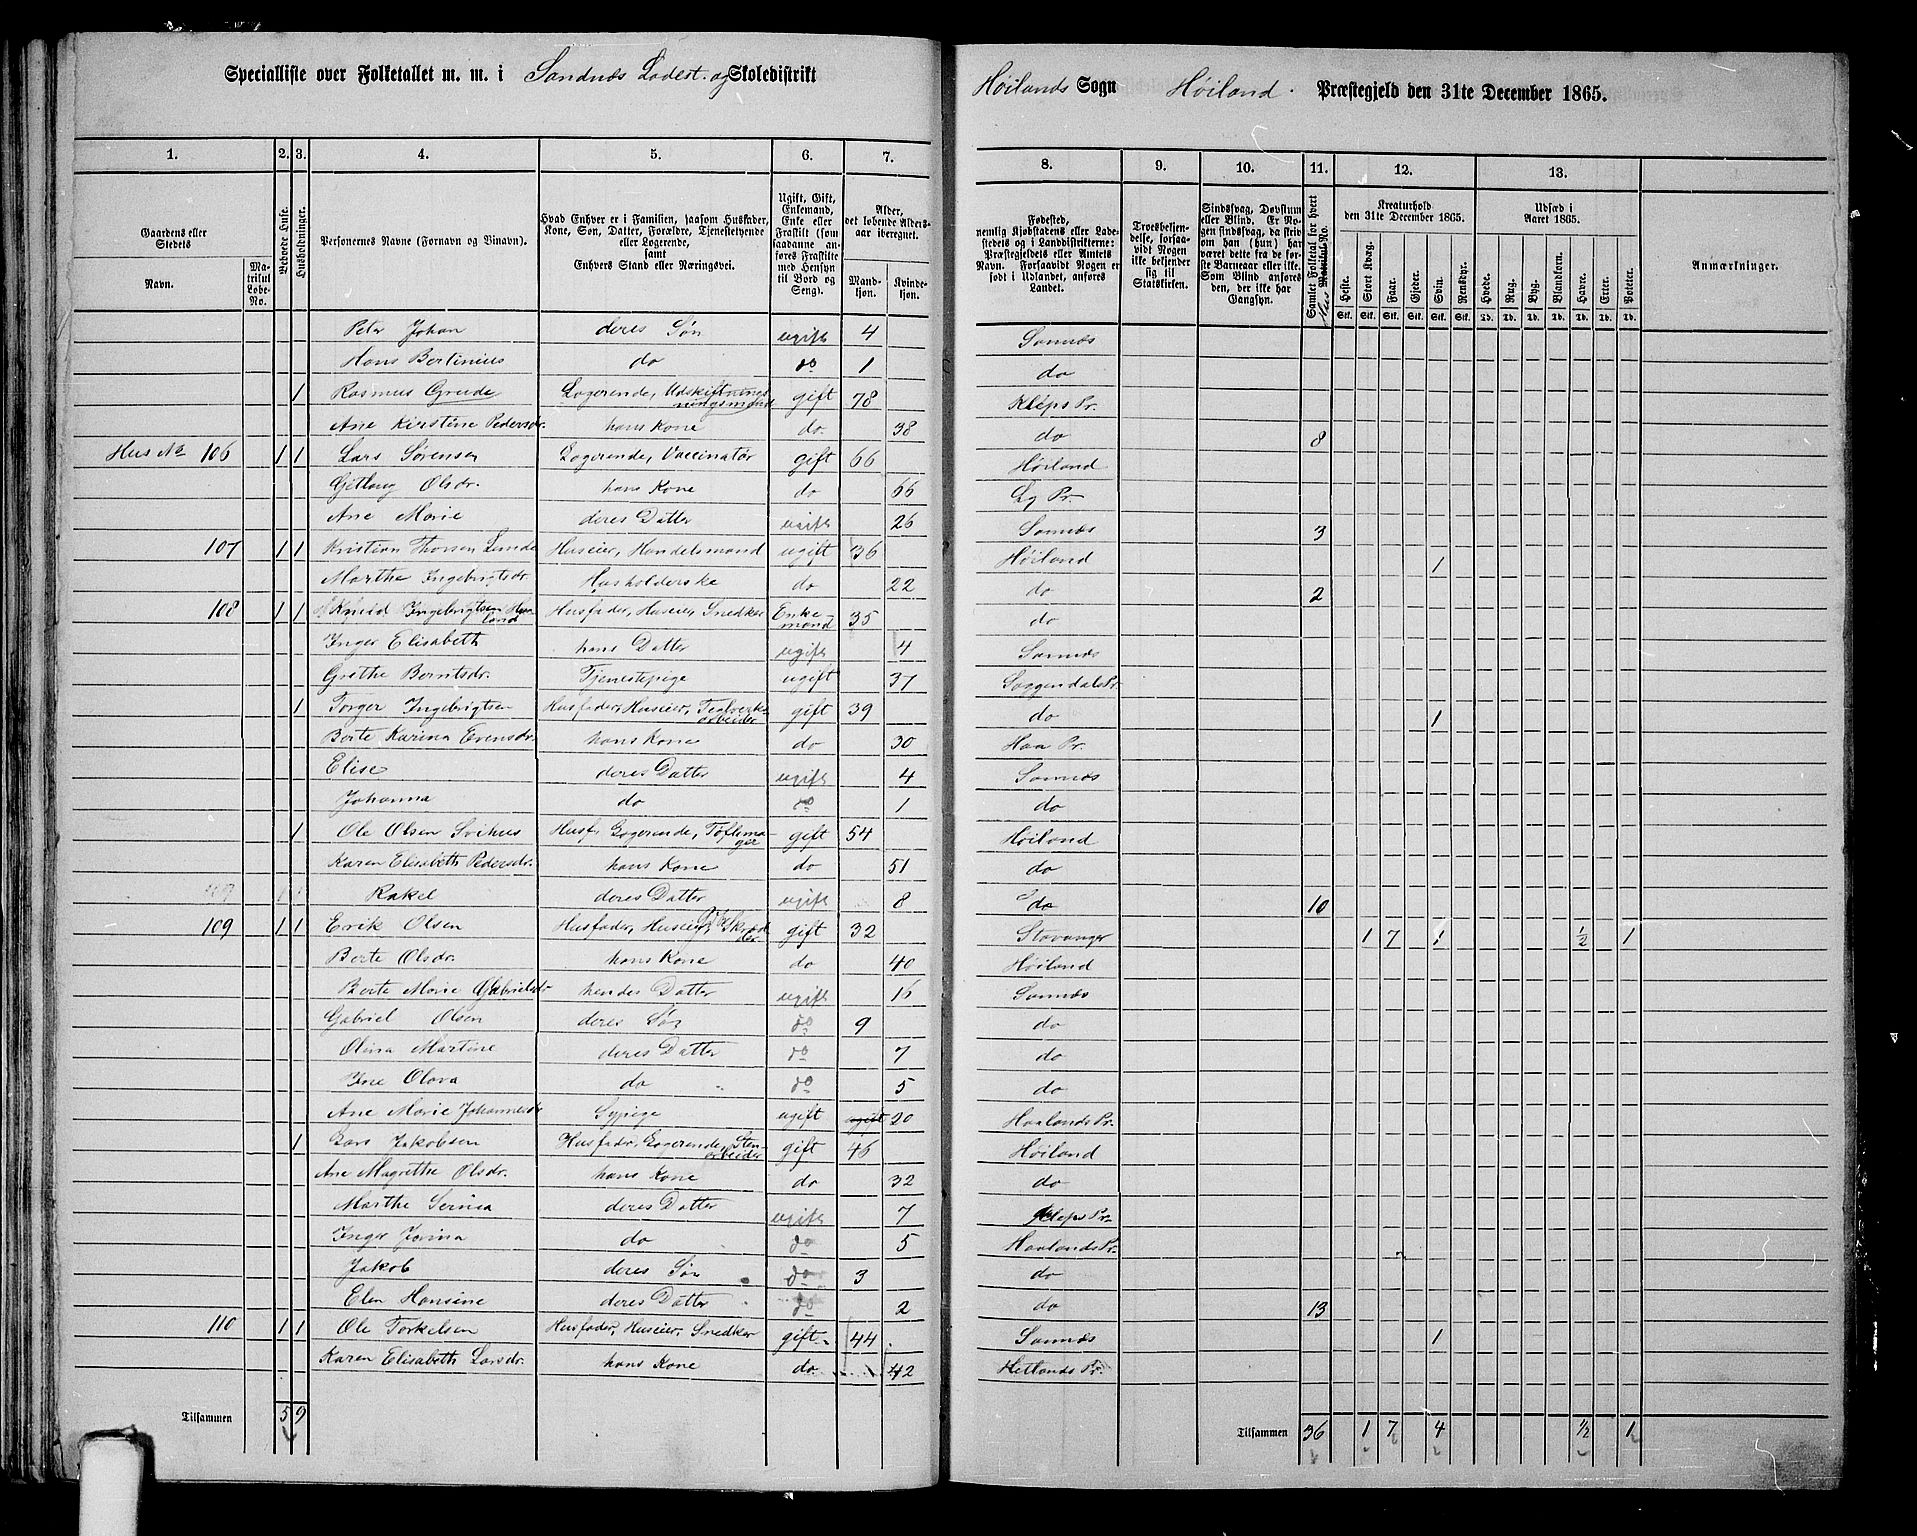 Specialliste over Folketallet m. m. i Sandnæs Ladest. og Skoledistrikt Høilands Sogn Høiland. Præstegjeld den 31te December 1865.
1. 2. 3. 4. 5. 6. 7. 8. 9. 10. 11. 12. 13.
Gaardens eller Stedets
Navn.
Matrikul Løbe-No.
Beboede Huse.
Husholdninger.
Personernes Navne (Fornavn og Tilnavn).
Hvad Enhver er i Familien, saasom Husfader, Kone, Søn, Datter, Forældre, Tjenestetyende eller Logerende, samt Enhvers Stand eller Næringsvei.
Ugift, Gift, Enkemand, Enke eller Fraskilt (som saadanne anføres Fraskilte med Hensyn til Bord og Seng).
Alder, det løbende Alders-aar iberegnet.
Mandkjøn. Kvindekjøn.
Fødested, nemlig Kjøbstadens eller Ladestedets og i Landdistrikterne: Præstegjeldets eller Amtets Navn. Forsaavidt Nogen er født i Udlandet, anføres Landet.
Troesbekjendelse, forsaavidt Nogen ikke bekjender sig til Statskirken.
Sindssvag, Døvstum eller Blind. Er Nogen sindssvag, da skrives om han (hun) har været det fra de første Barneaar eller ikke. Som Blind anføres den, der ikke har Gangsyn.
Samlet Folketal for hvert Hus No.
Kreaturhold den 31te December 1865.
Heste. Stort Kvæg. Faar. Gjeder. Svin. Rensdyr.
Udsæd i Aaret 1865.
Hvede. Rug. Byg. Blandkorn. Havre. Erter. Poteter.
Stk. Stk. Stk. Stk. Stk. Stk. Td. Td. Td. Td. Td. Td. Td.
Anmærkninger.
Peter Johan deres Søn ugift 4 Sannæs
Hans Bertinius do do 1 do
1 Rasmus Grude Logerende, Udskiftningsmand gift 78 Kleps Pr.
Ane Kirstine Pedersdr. hans Kone do 38 do 8
Hus No 106 1 1 Lars Sørensen Logerende, Vaccinatør gift 66 Høiland
Gitlaug Olsdr. hans Kone do 66 Ly Pr.
Ane Marie deres Datter ugift 26 Sannæs 3
107 1 1 Kristian Thorsen Lunde Huseier, Handelsmand ugift 36 Høiland 1
Marthe Ingebrigtsdr. Husholderske do 22 do 2
108 1 1 Knud Ingebrigtsen Haaland Husfader, Huseier, Snedker Enkemand 35 do
Inger Elisabeth hans Datter ugift 4 Sannæs
Grethe Berntsdr. Tjenestepige ugift 37 Soggendals Pr.
1 Torger Ingebrigtsen Husfader, Huseier, Teglverksarbeider gift 39 do 1
Berte Karina Evensdr. hans Kone do 30 Haa Pr.
Elise deres Datter ugift 4 Sannæs
Johanna do do 1 do
1 Ole Olsen Svihus Husf. Logerende, Tøflemager gift 54 Høiland
Karen Elisabeth Pedersdr. hans Kone do 51 do
Rakel deres Datter ugift 8 do 10
109 1 1 Erik Olsen Husfader, Huseier, Skrædder gift 32 Stavanger 1 7 1 1/2 1
Berte Olsdr. hans Kone do 40 Høiland
Berte Marie Gabrielsdr hendes Datter ugift 16 Sannæs
Gabriel Olsen deres Søn do 9 do
Olina Martine deres Datter do 7 do
Ine Olava do do 5 do
Ane Marie Johannesdr Sypige ugift 20 Haalands Pr.
1 Lars Jakobsen Husfader, Logerende, Stenarbeider gift 46 Høiland
Ane Magrethe Olsdr. hans Kone do 32 do
Marthe Serina deres Datter ugift 7 Kleps Pr.
Inger Jorina do do 5 Haalands Pr.
Jakob deres Søn do 3 do
Elen Hansine deres Datter do 2 do 13
110 1 1 Ole Torkelsen Husfader, Huseier, Snedker gift 44 Sannæs 1
Karen Elisabeth Larsdr. hans Kone do 42 Hetlands Pr.
Tilsammen 5 9 Tilsammen 36 1 7 4 1/2 1